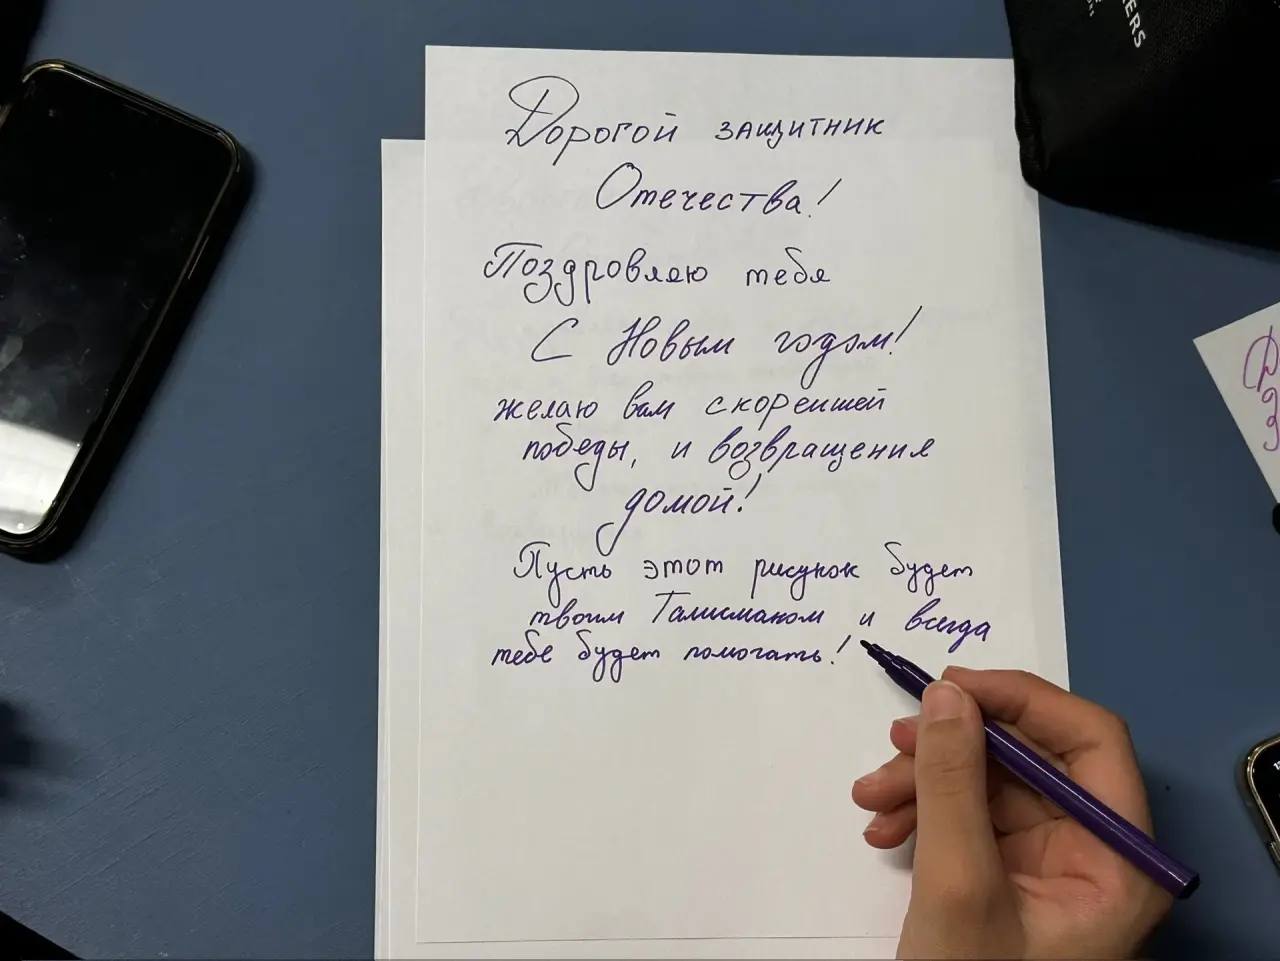 Дорогой защитник
Отечества!
Поздровляю тебя
С Новым годом!
желаю вам скорейшей
победы, и возвращения
домой!
Пусть этот рисунок будет
твоим Талисманом и всегда
тебе будет помогать!
ERS